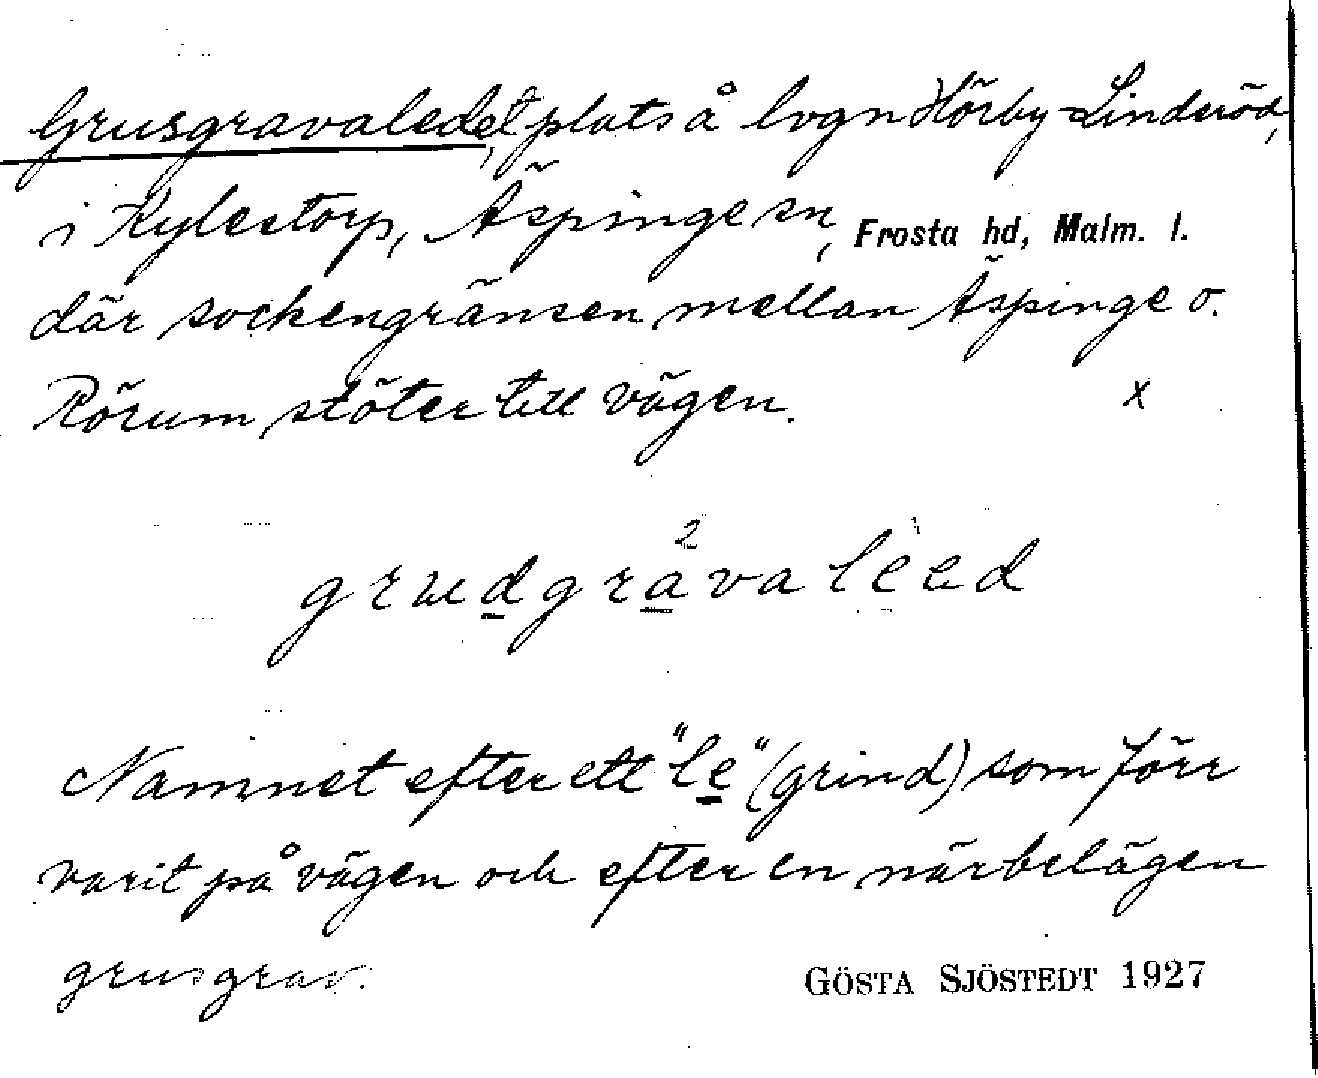 Grusgravaledet, plats å lvgn Hörby-Linderöd,
i Kylestorp, Äspinge sn, Frosta hd, Malm. l.
där sockengränsen mellan Äspinge o.
Rörum stöter till vägen. x
Namnet efter ett "le" (grind) som förr
varit på vägen och efter en närbelägen
grusgrav.
GÖSTA SJÖSTEDT 1927